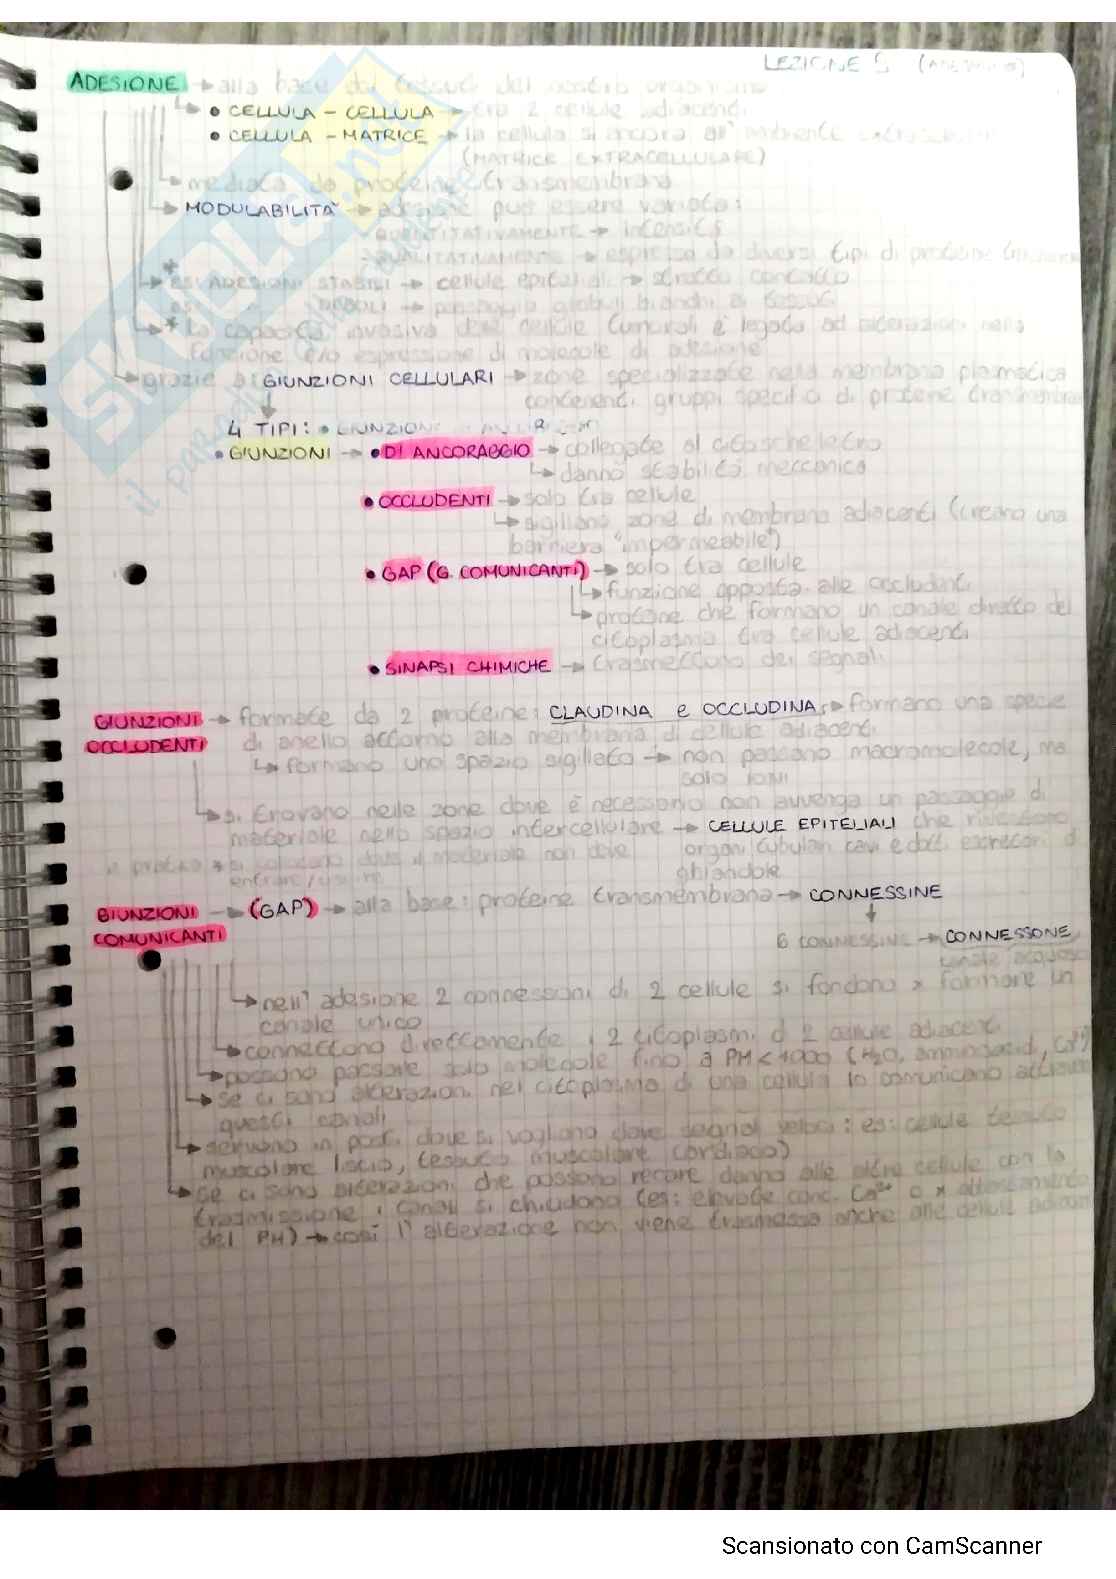 LEZIONE 5
ADESIONE → alla base dei tessuti del nostro organismo
• CELLULA - CELLULA → tra 2 cellule adiacenti
• CELLULA - MATRICE → la cellula si ancora all'ambiente extracellulare
(MATRICE EXTRACELLULARE)
mediata da proteine transmembrana
MODULABILITÀ → adesione può essere variata:
QUANTITATIVAMENTE → intensità
QUALITATIVAMENTE → espressa da diversi tipi di proteine
* ADESIONI STABILI → cellule epiteliali → stretto contatto
DEBOLI → passaggio globuli bianchi ai tessuti
* La capacità invasiva delle cellule tumorali è legata ad alterazioni nella
funzione e/o espressione di molecole di adesione
grazie a: GIUNZIONI CELLULARI → zone specializzate nella membrana plasmatica
contenenti gruppi specifici di proteine transmembrana
4 TIPI: • GIUNZIONI
• GIUNZIONI → • DI ANCORAGGIO → collegate al citoscheletro
danno stabilità meccanica
• OCCLUDENTI → solo tra cellule
sigillano zone di membrana adiacenti (creano una
barriera "impermeabile")
• GAP (G. COMUNICANTI) → solo tra cellule
funzione opposta alle occludenti
proteine che formano un canale diretto del
citoplasma tra cellule adiacenti
• SINAPSI CHIMICHE → trasmettono dei segnali
GIUNZIONI OCCLUDENTI → formate da 2 proteine: CLAUDINA e OCCLUDINA → formano una specie
di anello attorno alla membrana di cellule adiacenti
formano uno spazio sigillato → non passano macromolecole, ma
solo ioni
si trovano nelle zone dove è necessario non avvenga un passaggio di
materiale nello spazio intercellulare → CELLULE EPITELIALI che rivestono
organi tubulari cavi e dotti escretori di
ghiandole
si collocano dove il materiale non deve
entrare/uscire
GIUNZIONI COMUNICANTI → (GAP) → alla base: proteine transmembrana → CONNESSINE
6 CONNESSINE → CONNESSONE
canale acquoso
nell'adesione 2 connessoni di 2 cellule si fondono x formare un
canale unico
connettono direttamente i 2 citoplasmi di 2 cellule adiacenti
possono passare solo molecole fino a PM < 1000 (H2O, amminoacidi, Ca²⁺)
se ci sono alterazioni nel citoplasma di una cellula lo comunicano attraverso
questi canali
servono in posti dove si vogliono dare segnali veloci: es: cellule tessuto
muscolare liscio, tessuto muscolare cardiaco)
se ci sono alterazioni che possono recare danno alle altre cellule con la
trasmissione i canali si chiudono (es: elevate conc. Ca²⁺ o x abbassamento
del PH) → così l'alterazione non viene trasmessa anche alle cellule adiacenti
SKUOLA.net
Scansionato con CamScanner